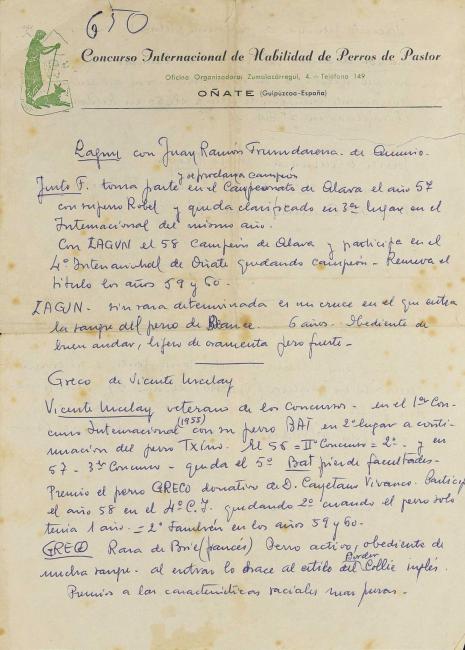 650
Concurso Internacional de Habilidad de Perros de Pastor
Oficina Organizadora: Zumalacárregui, 4. - Teléfono 149
OÑATE (Guipúzcoa-España)
Lagun con Juan Ramón de
y se proclama campeón
Justo F. toma parte en el Campeonato de Alava el año 57
con su perro y queda clasificado en 3er lugar en el
Internacional del mismo año.
Con LAGUN el 58 Campeón de Alava y participa en el
4º Internacional de Oñate quedando campeón - Renueva el
titulo los años 59 y 60.
LAGUN - sin raza determinada es un cruce en el que entra
la sangre del perro de 6 años. Obediente de
buen andar, ligero de osamenta pero fuerte -
Greco de Vicente Urcelay
Vicente Urcelay veterano de los concursos - en el 1er Con-
curso Internacional (1955) con su perro BAT en 2º lugar a conti-
nuación del perro Txino. El 56 = IIº Concurso = 2º - y en
57 - 3er Concurso - queda el 5º Bat pierde facultades -
Premio el perro GRECO donativo de D. Cayetano Vivanco. Participa
el año 58 en el 4º C.I. quedando 2º cuando el perro solo
tenía 1 año. = 2º también en los años 59 y 60 -
GRECO Raza de Brie (francés) Perro activo, obediente de
mucha sangre - al entrar lo hace al estilo del Border Collie inglés.
Premios a las características raciales mas puras -